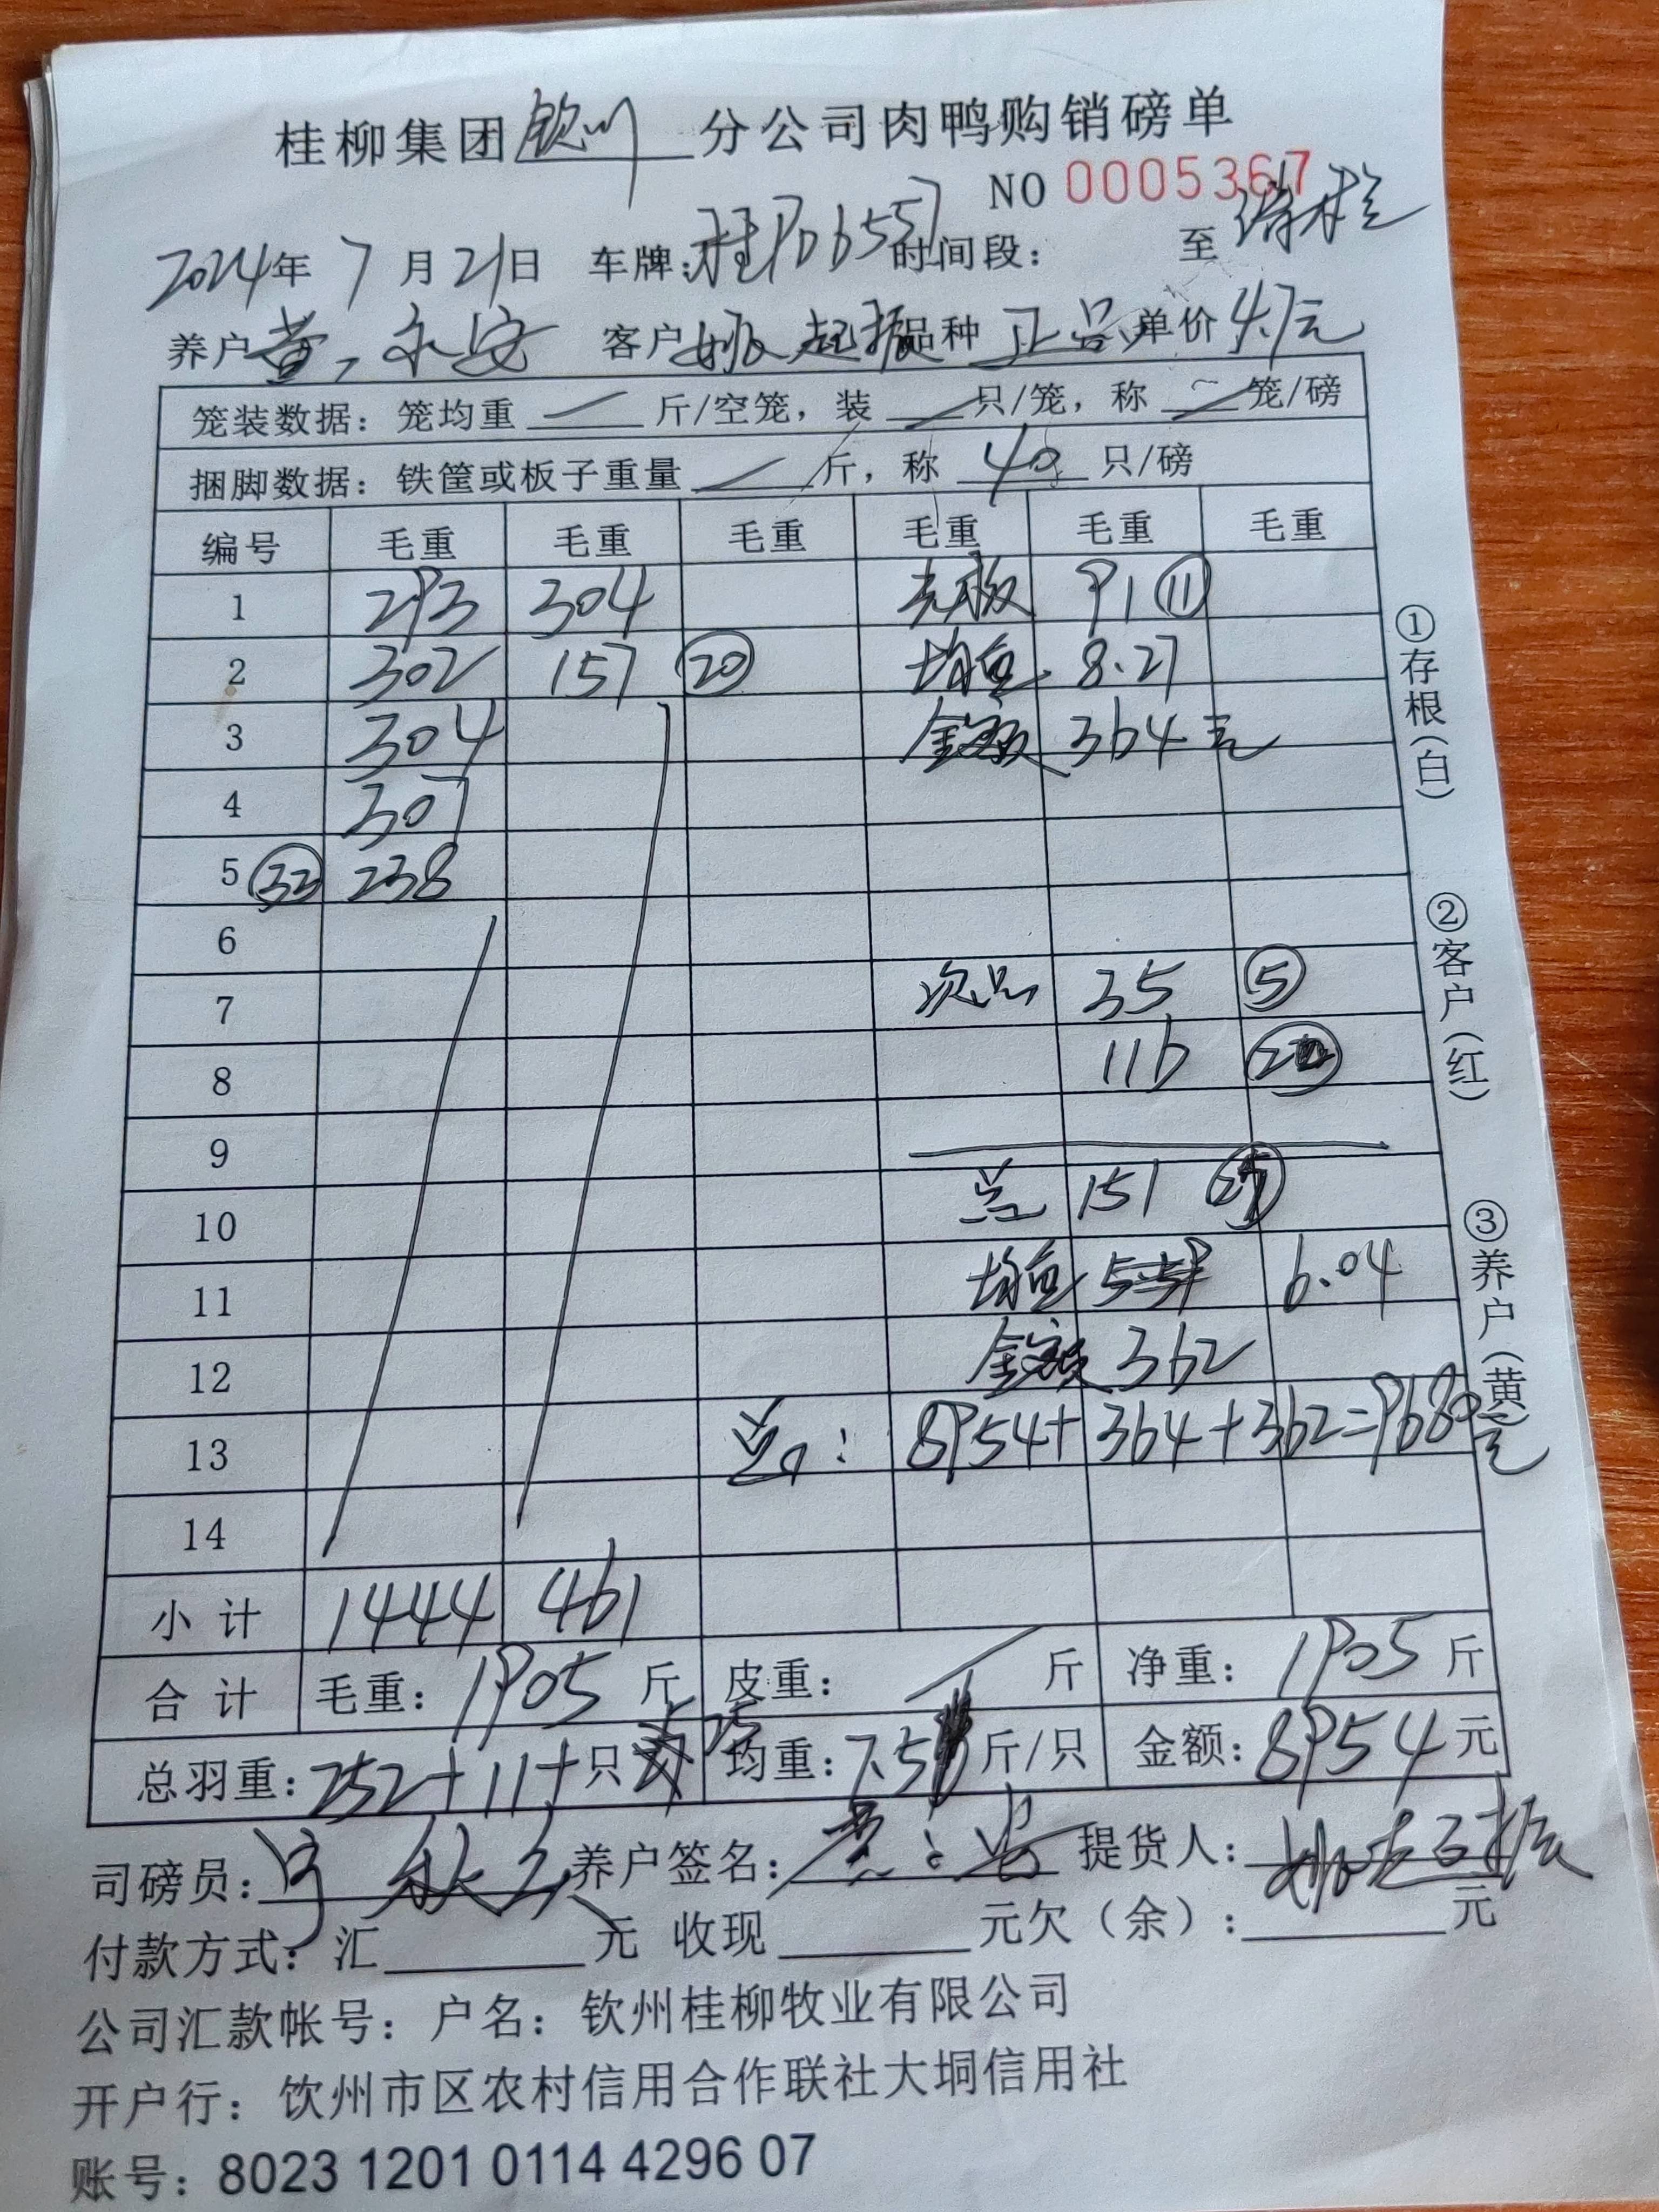 桂柳集团钦州分公司肉鸭购销磅单
NO 0005367
2024年 7 月 21日 车牌:桂PD655 时间段: 至 清栏
养户 黄永安 客户 姚起振 品种 正品 单价 4.7元
笼装数据: 笼均重 斤/空笼, 装 只/笼, 称 笼/磅
捆脚数据: 铁筐或板子重量 斤, 称 40 只/磅
编号 毛重 毛重 毛重 毛重 毛重 毛重
1 293 304 毛板 91 ⑪
2 302 157 ⑳ 均重 8.27
3 304 金额 364元
4 307
5 ㉜ 238
6
7 次品 35 ⑤
8 116
9
10 总 151
11 均重 6.04
12 金额 362
13 总: 8954+364+362=9680元
14
小计 1444 461
合计 毛重: 1905 斤 皮重: 斤 净重: 1905 斤
总羽重: 252+11+ 只 25 均重: 7.5 斤/只 金额: 8954 元
司磅员: 养户签名: 提货人: 姚起振
付款方式: 汇 元 收现 元欠(余): 元
公司汇款帐号: 户名: 钦州桂柳牧业有限公司
开户行: 饮州市区农村信用合作联社大垌信用社
账号: 8023 1201 0114 4296 07
①存根(白)
②客户(红)
③养户(黄)